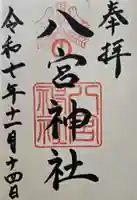 奉拝
八宮神社
令和七年十一月十四日